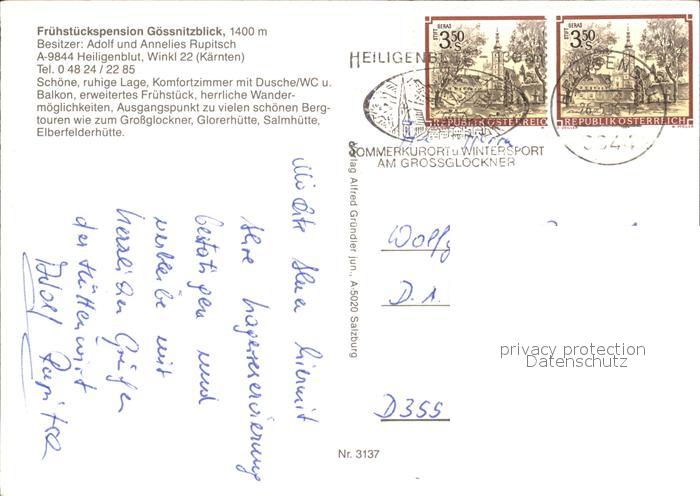 Frühstückspension Gössnitzblick, 1400 m
Besitzer: Adolf und Annelies Rupitsch
A-9844 Heiligenblut, Winkl 22 (Kärnten)
Tel. 0 48 24 / 22 85
Schöne, ruhige Lage, Komfortzimmer mit Dusche/WC u.
Balkon, erweitertes Frühstück, herrliche Wander-
möglichkeiten, Ausgangspunkt zu vielen schönen Berg-
touren wie zum Großglockner, Glorerhütte, Salmhütte,
Elberfelderhütte.
Möchte Ihnen hiermit
Ihre Lagerreservierung
bestätigen und
verbleibe mit
herzlichen Grüßen
der Hüttenwirt
Adolf Rupitsch
Verlag Alfred Gründler jun., A-5020 Salzburg
Nr. 3137
STIFT GERAS
3.50 S
REPUBLIK ÖSTERREICH
STIFT GERAS
3.50 S
REPUBLIK ÖSTERREICH
HEILIGENBLUT
SOMMERKURORT u. WINTERSPORT
AM GROSSGLOCKNER
9844
Wolfg
D. 1.
D355
privacy protection
Datenschutz